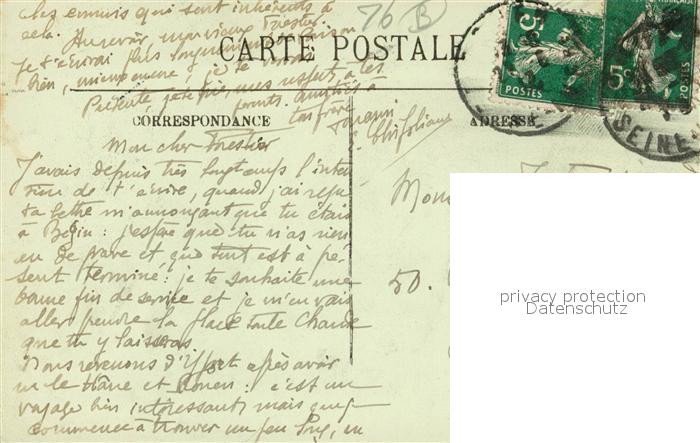 chez ennuis qui sont inhérents à
cela. Au revoir mon vieux Forestier
je t'écrirai plus longuement
bien,
Présente, je te prie, mes respects à tes
parents. Amitiés à
ton frère
76 B
CARTE POSTALE
5c
POSTES
5c
POSTES
SEINE
CORRESPONDANCE
ADRESSE
Mon cher Forestier
J'avais depuis très longtemps l'inten
tion de t'écrire, quand j'ai reçu
ta lettre m'annonçant que tu étais
à Bégin : j'espère que tu n'as rien
eu de grave et que tout est à pré-
sent terminé : je te souhaite une
bonne fin de service et je m'en vais
aller prendre la place toute chaude
que tu y laisses.
Nous revenons d'Yport après avoir
vu le Havre et Rouen : c'est un
voyage bien intéressant, mais qui
commence à trouver un peu long, en
50.
privacy protection
Datenschutz